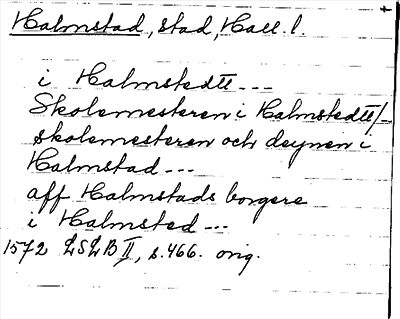 Halmstad, stad, Hall. l.
i Halmstedtt ---
Skolemesteren i Halmstedtt/--
skolemesteren och deynen i
Halmstad ---
aff Halmstads borgere
i Halmsted ---
1572 LSLB II, s. 466. orig.